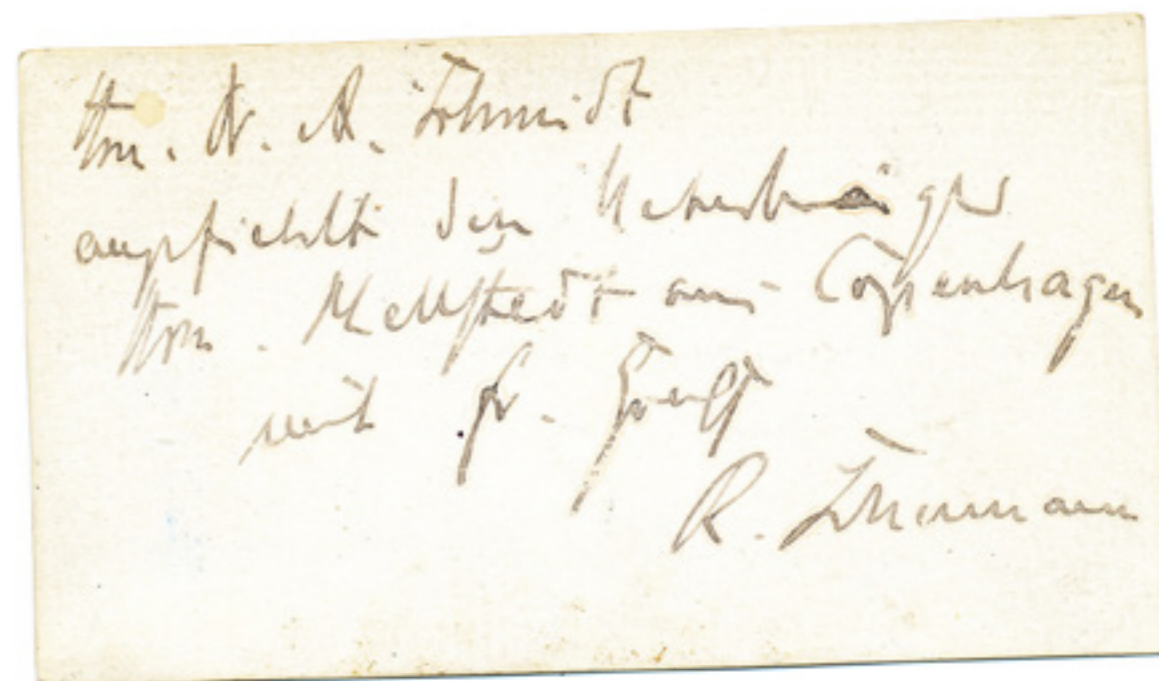 Hrn. Dr. A. Schmidt
empfiehlt den Ueberbringer
Hrn. Hellstedt aus Copenhagen
mit fr. Gruß
R. Schumann